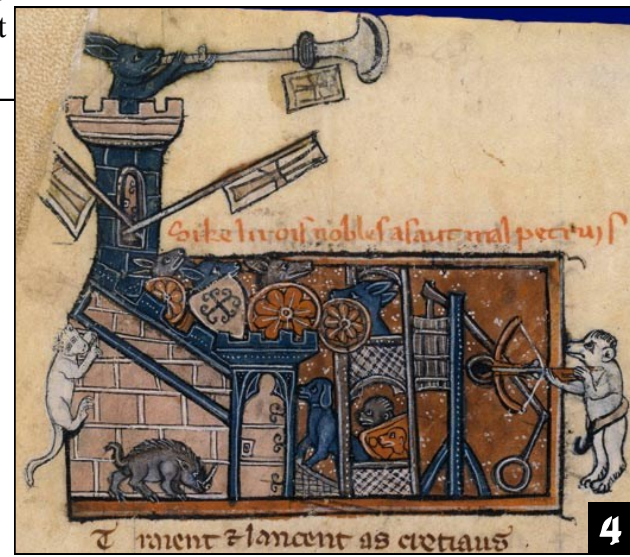 t
Si ke li rois nobles asaut mal petruis
T raient ⁊ lancent as cretiaus
4